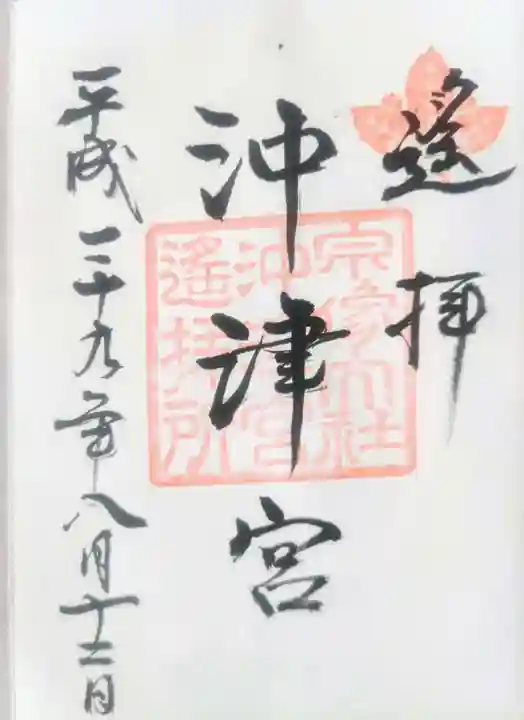 遙拝
沖津宮
宗像大社
沖津宮
遙拝所
平成二十九年八月十二日